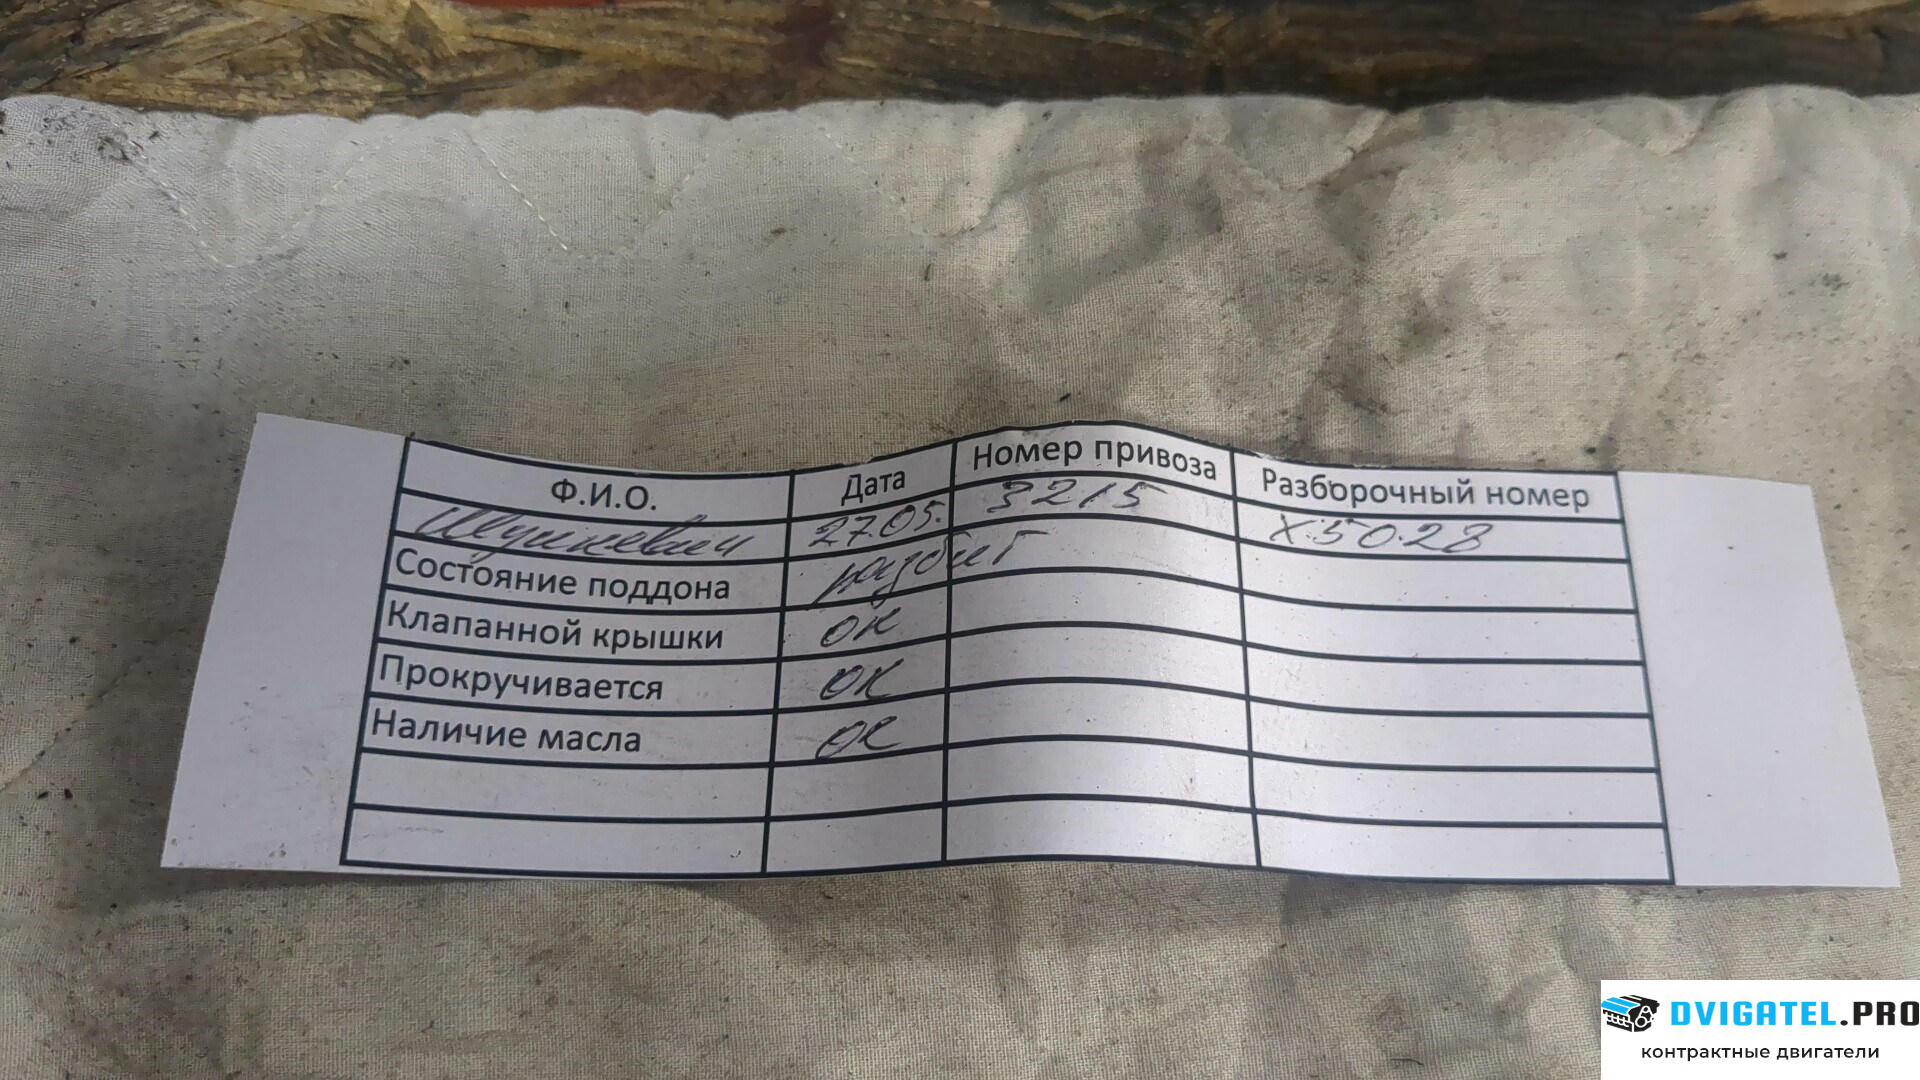 Ф.И.О. Дата Номер привоза Разборочный номер
27.05. 3215 X5028
Состояние поддона разбит
Клапанной крышки ок
Прокручивается ок
Наличие масла ок
DVIGATEL.PRO
контрактные двигатели